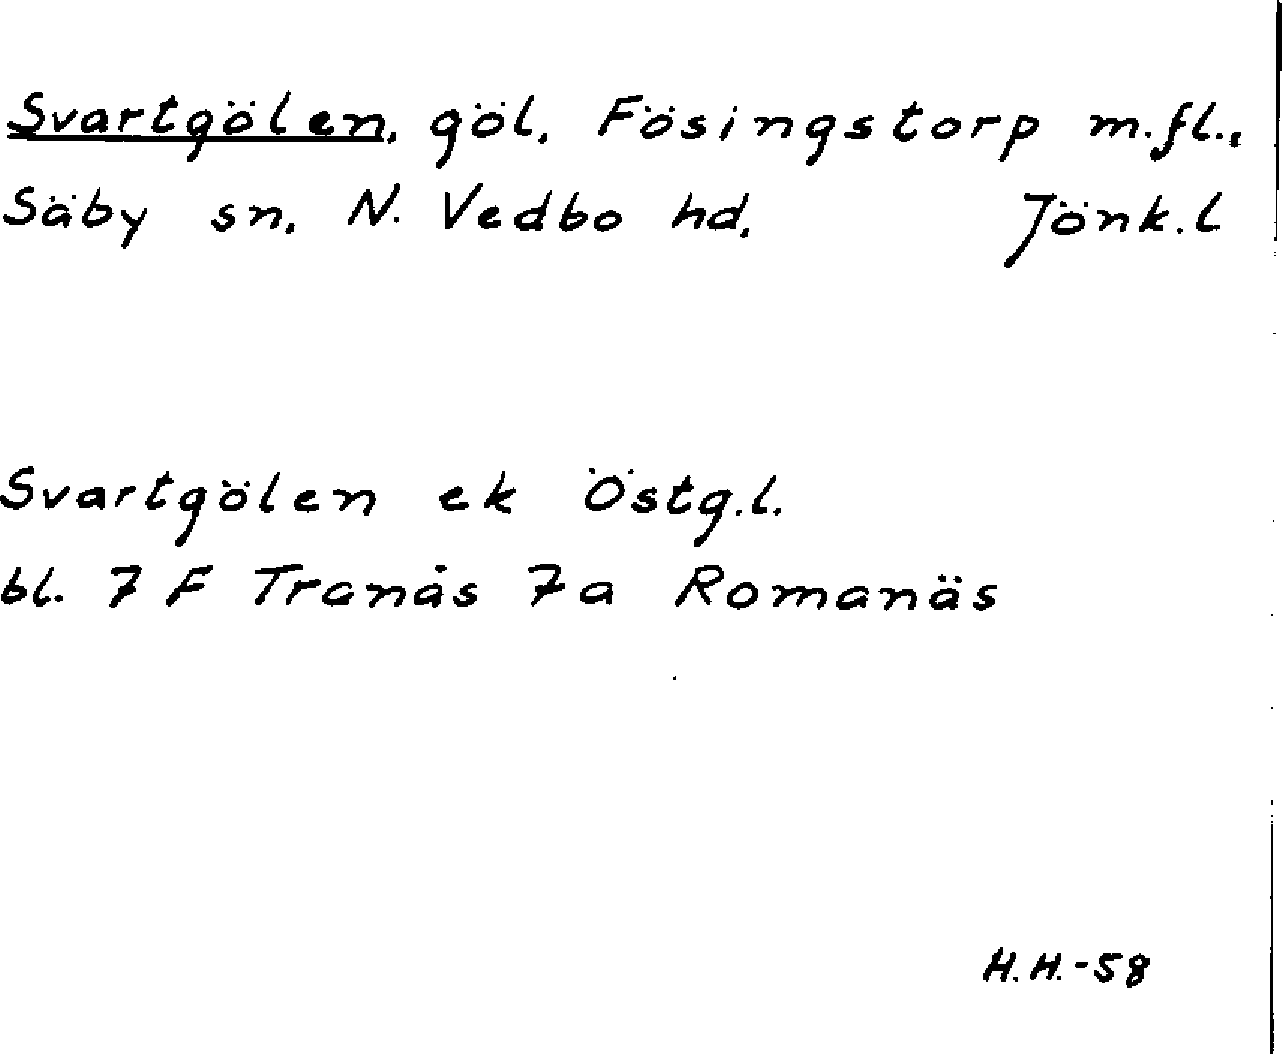 Svartgölen, göl, Fösingstorp m.fl.,
Säby sn, N. Vedbo hd, Jönk.l
Svartgölen ek Östg.l.
bl. 7 F Tranås 7a Romanäs
H.H.-58